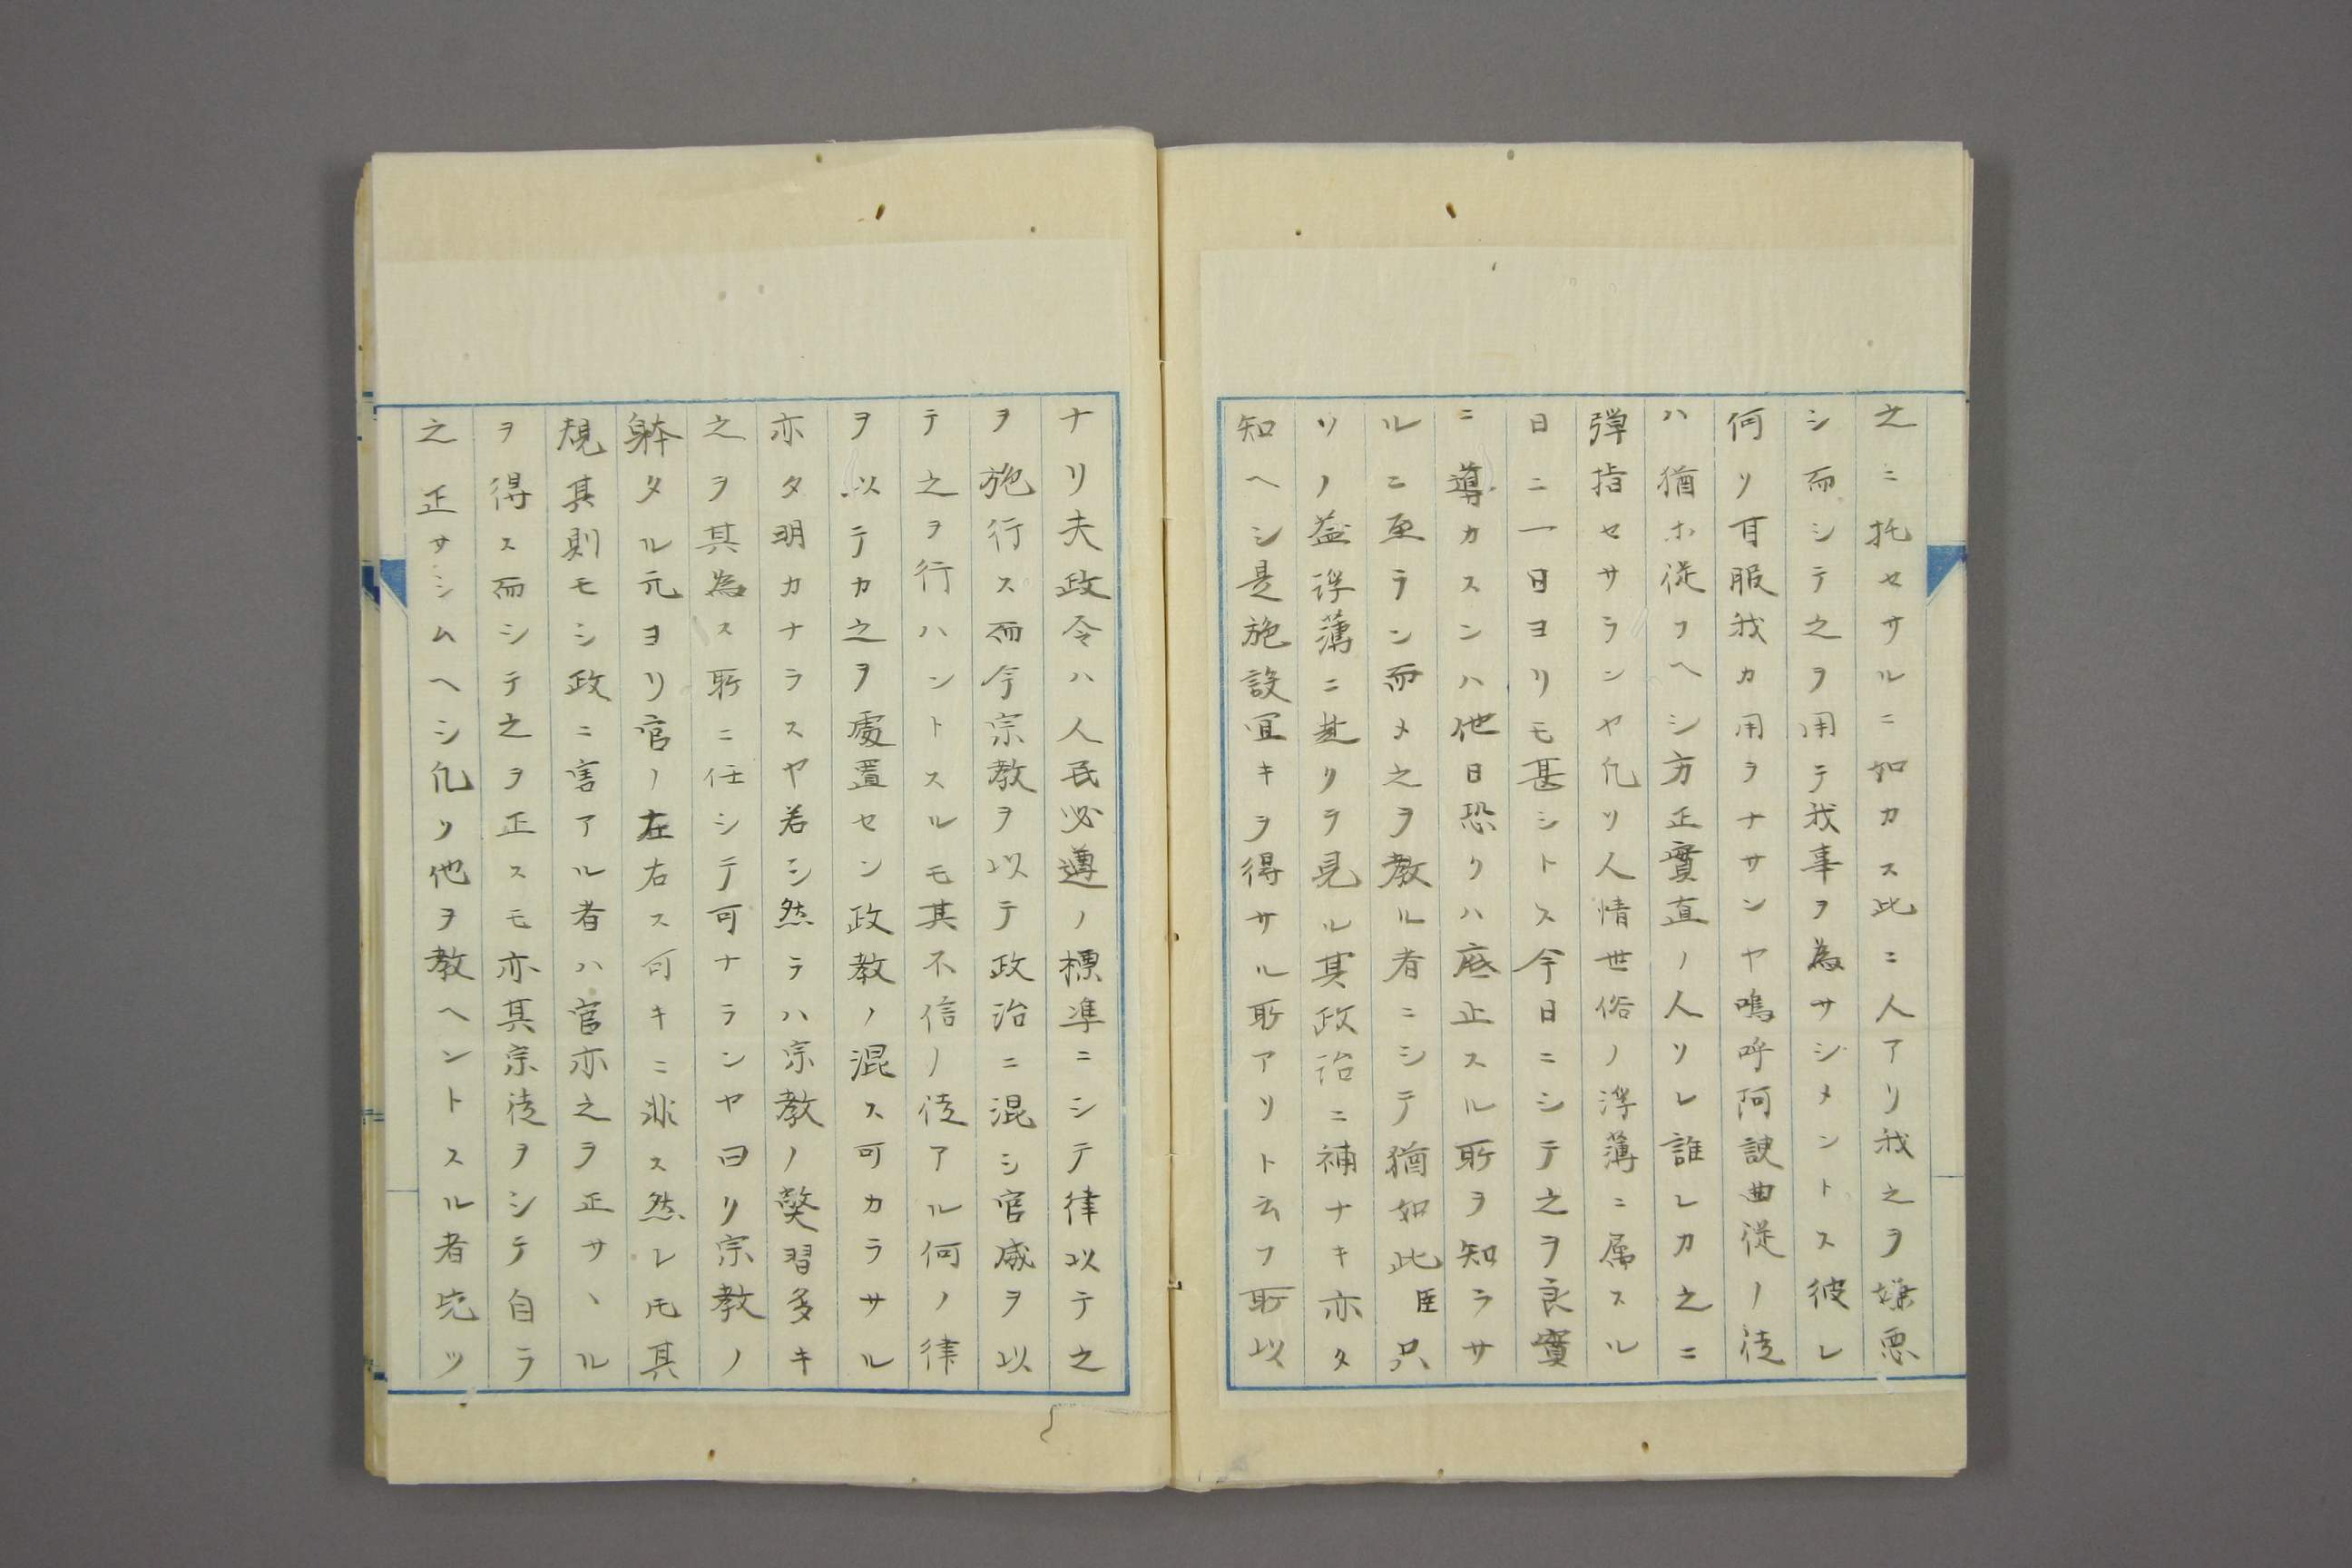 之ニ托セサルニ如カス此ニ人アリ我之ヲ嫌悪
シ而シテ之ヲ用テ我事ヲ為サシメントス彼レ
何ソ耳服我カ用ヲナサンヤ嗚呼阿諛曲従ノ徒
ハ猶ホ従フヘシ方正實直ノ人ソレ誰レカ之ニ
弾指セサランヤ凡ソ人情世俗ノ浮薄ニ属スル
日ニ一日ヨリモ甚シトス今日ニシテ之ヲ良實
ニ導カスンハ他日恐クハ底止スル所ヲ知ラサ
ルニ至ラン而メ之ヲ教ル者ニシテ猶如此臣只
ソノ益浮薄ニ趣クヲ見ル其政治ニ補ナキ亦タ
知ヘシ是施設宜キヲ得サル所アリト云フ所以
ナリ夫政令ハ人民必遵ノ標準ニシテ律以テ之
ヲ施行ス而今宗教ヲ以テ政治ニ混シ官威ヲ以
テ之ヲ行ハントスルモ其不信ノ徒アル何ノ律
ヲ以テカ之ヲ處置セン政教ノ混ス可カラサル
亦タ明カナラスヤ若シ然ラハ宗教ノ弊習多キ
之ヲ其為ス所ニ任シテ可ナランヤ曰リ宗教ノ
躰タル元ヨリ官ノ左右ス可キニ非ス然レ𪜈其
規其則モシ政ニ害アル者ハ官亦之ヲ正サヽル
ヲ得ス而シテ之ヲ正スモ亦其宗徒ヲシテ自ラ
之正サシムヘシ凡ソ他ヲ教ヘントスル者先ツ